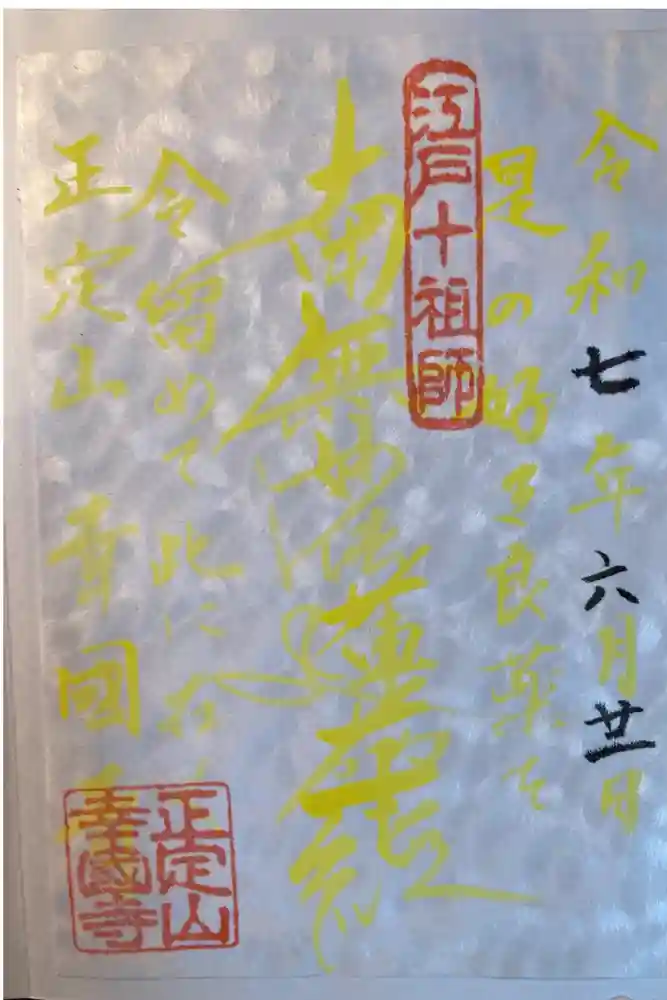 令和七年六月廿日
是の好き良薬を
江戸十祖師
南無妙法蓮華経
今留めて此に在
正定山 幸國
正定山
幸國寺